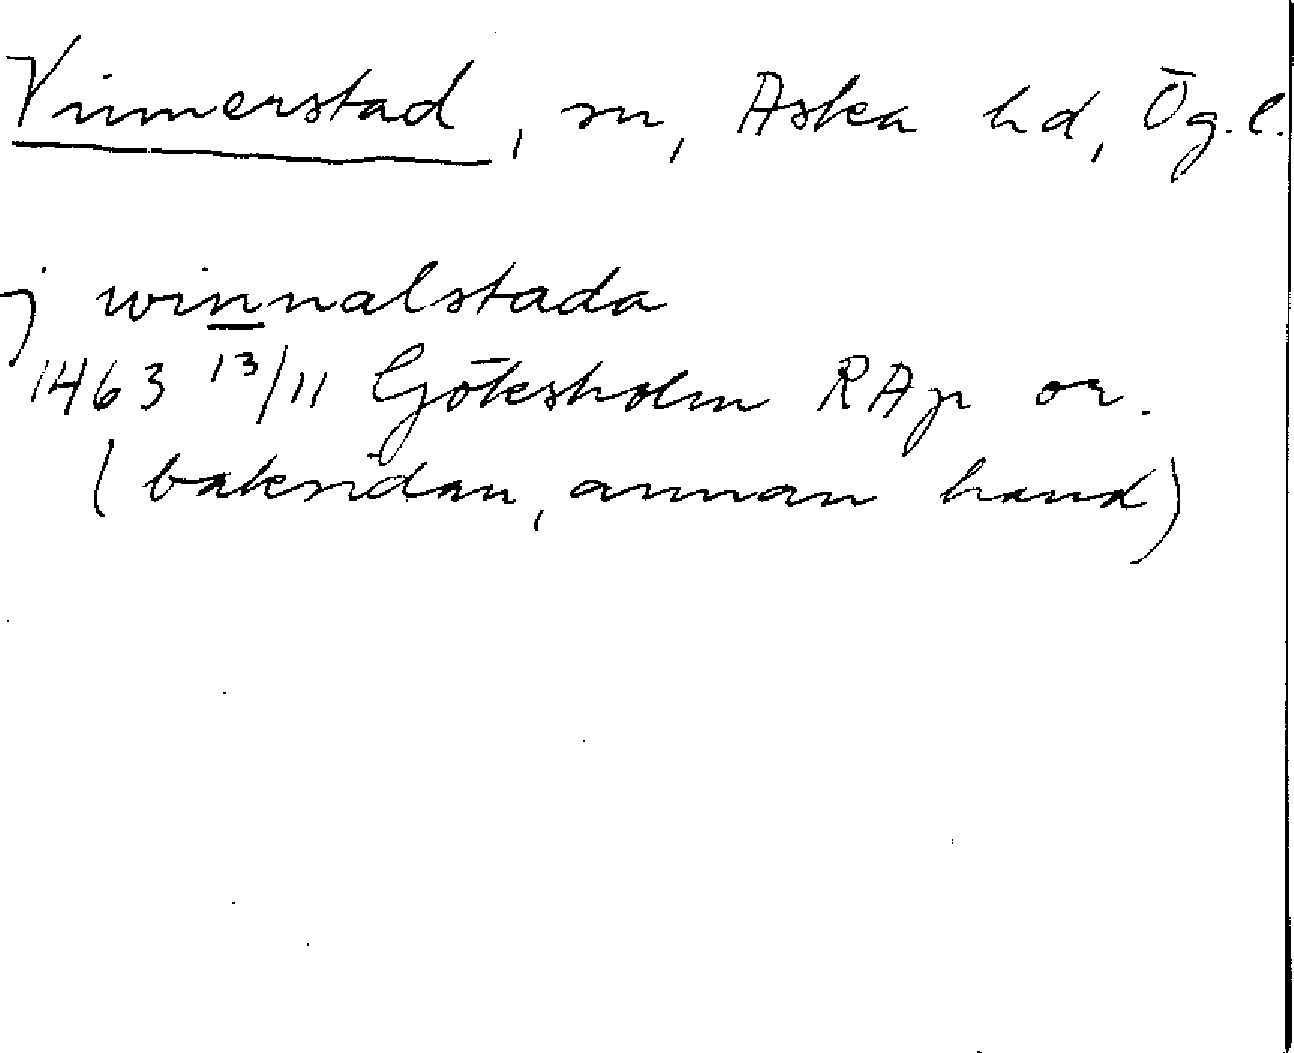 Vinnerstad, sn, Aska hd, Ög.l.
j winnalstada
1463 13/11 Göksholm RAp or.
(baksidan, annan hand)